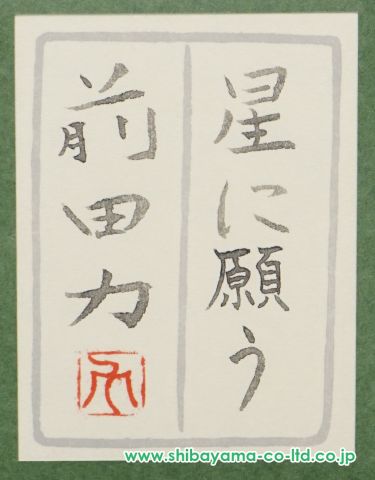 星に願う
前田力
www.shibayama-co-ltd.co.jp